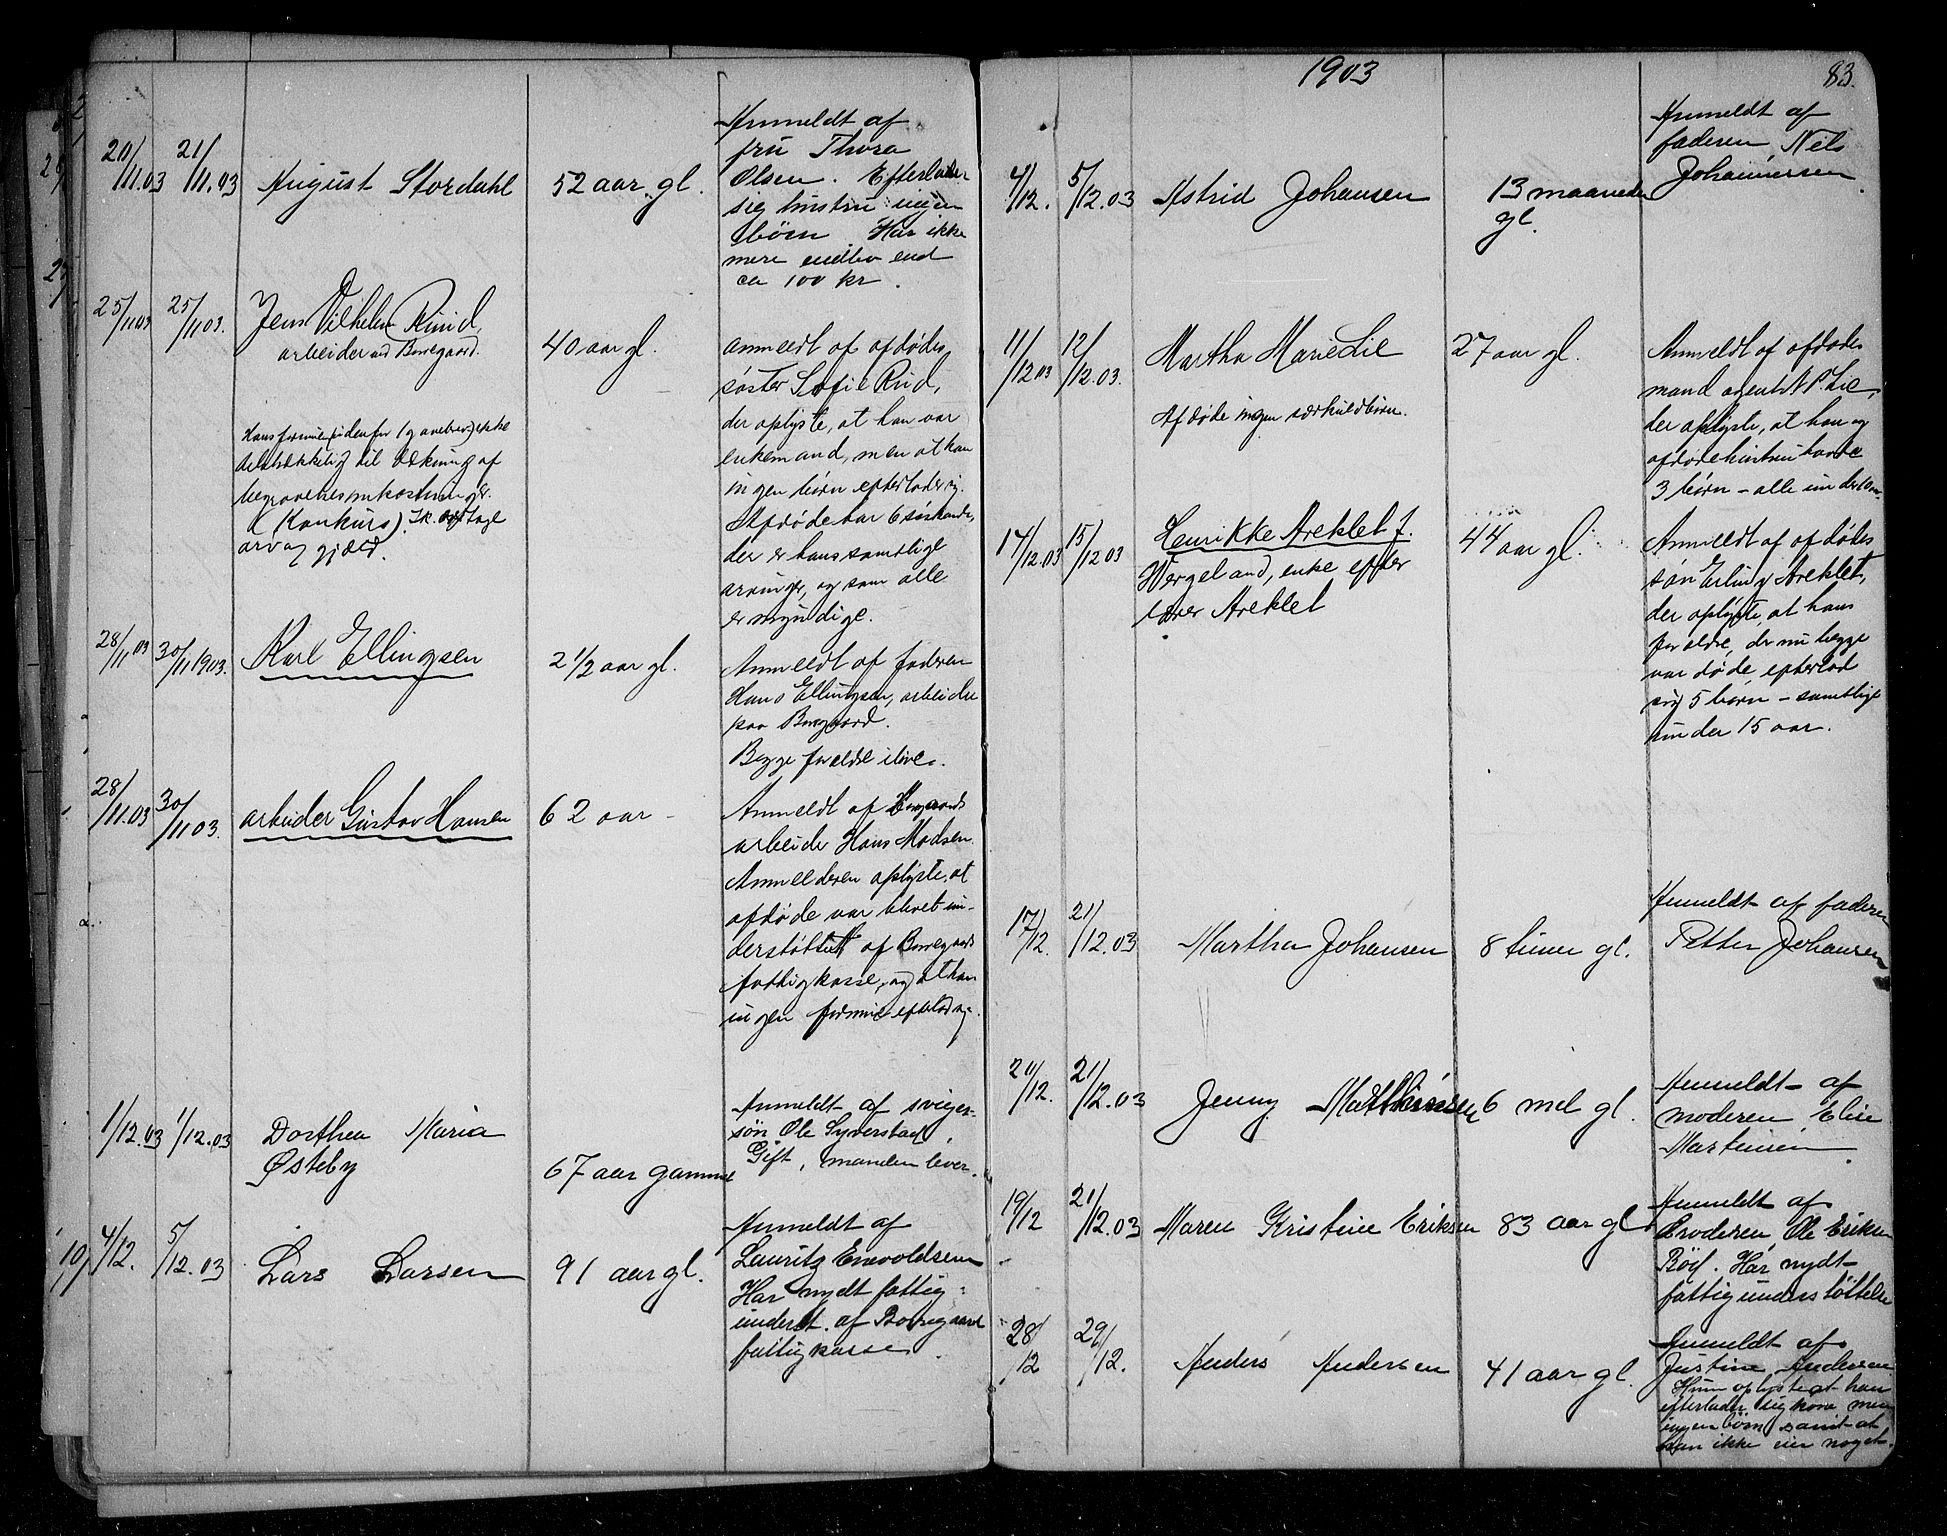 20/11.03 21/11.03 August Stordahl 52 aar gl.
Anmeldt af
fru Thora
Olsen. Efterlader
sig hustru ingen
børn Har ikke
mere endbo end
ca 100 kr.
25/11 03 25/11 03. Jens Vilhelm Rund,
arbeider ved Borregaard.
40 aar gl.
anmeldt af afdødes
søster Sofie Rud,
der oplyste, at han var
enkemand, men at han
ingen børn efterlader sig.
Afdøde har 6 søskende,
der er hans samtlige
arvinger, og som alle
er myndige.
Hans formue ikke
tilstrækkelig til dækning af
begravelsesomkostninger.
(Konkurs). Ik. overtage
arv og gjæld.
28/11 03 30/11 1903. Karl Ellingsen 2 1/2 aar gl.
Anmeldt af faderen
Hans Ellingsen, arbeider
paa Borregaard.
Begge forældre ilive.
28/11.03 30/11 03. arbeider Gustav Hansen 62 aar -
Anmeldt af Borregaards
arbeider Hans Madsen.
Anmelderen oplyste, at
afdøde var blevet un-
derstøttet af Borregaards
fattigkasse, og at han
ingen formue efterlod sig.
1/12.03 1/12.03 Dorthea Maria
Østeby
67 aar gammel
Anmeldt af sviger-
søn Ole Syverstad
Gift, manden lever.
4/12. 5/12.03 Lars Larsen 91 aar gl.
Anmeldt af
Lauritz Enevoldsen
Har nydt fattig-
underst. af Borregaard
fattigkasse.
1903
83.
4/12. 5/12.03 Astrid Johansen 13 maaneder
gl.
Anmeldt af
faderen, Nils
Johannesen.
11/12 03 12/12.03. Martha Marie Lie 27 aar gl.
Afdøde ingen særkuldbørn.
Anmeldt af afdødes
mand agent N P. Lie,
der oplyste, at han og
afdøde hustru havde
3 børn - alle
14/12.03 15/12 03 Henrikke Areklet f.
Wergeland, enke efter
lærer Areklet
44 aar gl.
Anmeldt af afdødes
søn Erling Areklet,
der oplyste, at hans
forældre, der nu begge
var døde, efterlod
sig 5 børn - samtlige
under 15 aar.
17/12. 21/12.03 Martha Johansen 8 timer gl.
Anmeldt af faderen
Petter Johansen
20/12. 21/12.03 Jenny Mathinsen 6 mdl gl.
Anmeldt af
moderen Elise
Martinsen.
19/12 21/12.03 Maren Kristine Eriksen 83 aar gl
Anmeldt af
broderen, Ole Eriksen
Bøy. Har nydt
fattigunderstøttelse
28/12 29/12. Anders Andersen 41 aar gl.
Anmeldt af
Justine Andersen
Hun oplyste at han
efterlader sig kone men
ingen børn samt at
han ikke eier noget.